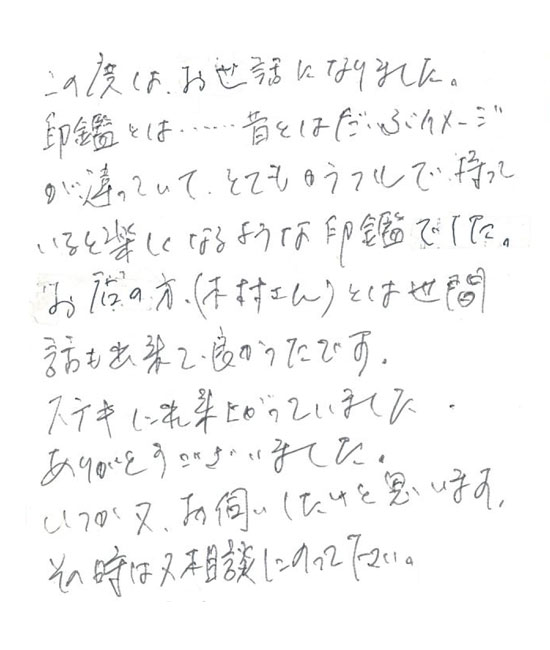 この度は、お世話になりました。
印鑑とは……昔とはだいぶイメージ
が違っていて、とてもカラフルで、持って
いると楽しくなるような印鑑でした。
お店の方、(木村さん)とは世間
話も出来て、良かったです。
ステキに出来上がっていました。
ありがとうございました。
いつか又、お伺いしたいと思います。
その時は又相談にのって下さい。